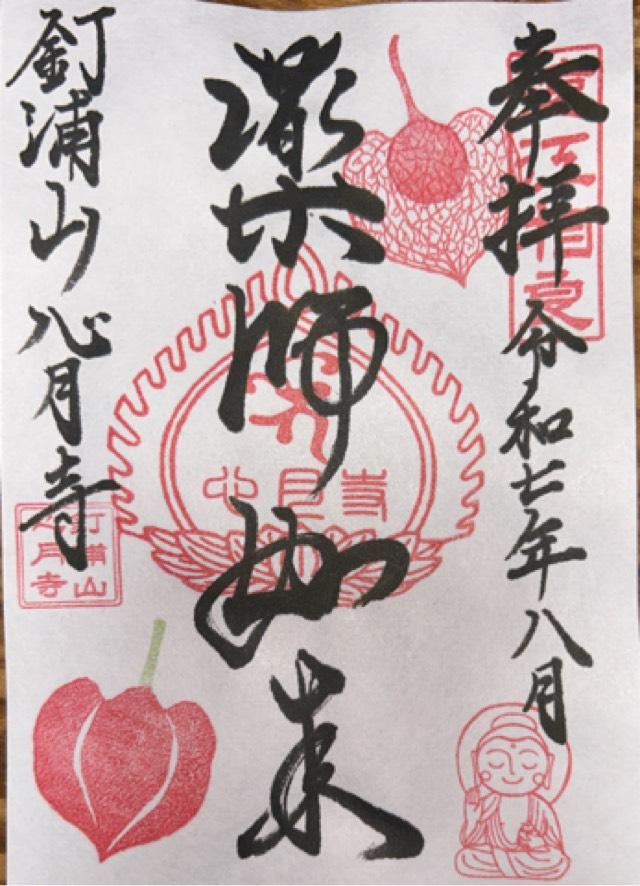 奉拝
令和七年八月
薬師如来
心月寺
釘浦山
心月寺
釘浦山
心月寺